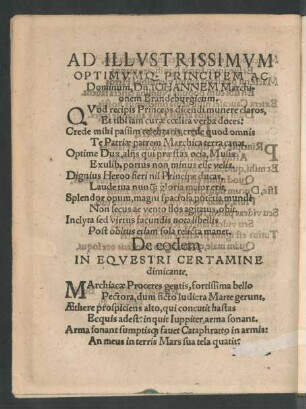 AD ILLVSTRISSIMVM
OPTIMVMQ: PRINCIPEM AC
Dominum, Dn. IOHANNEM Marchi-
onem Brandeburgicum.
QVod recipis Princeps dicendi munere claros,
Et tibi iam curæ exelica verba doces:
Crede mihi passim celebraris, crede quod omnis
Te Patriæ patrem Marchica terra canat.
Optime Dux, alijs qui præstas ocia, Musis
Exulib, portus non minus esse velis.
Dignius Heroo fieri nil Principe ducas,
Laude tua nunq; gloria maior erit.
Splendor opum, magni spaciosa potentia mundi,
Non secus ac vento flos agitatus abit.
Inclyta sed virtus facundis nota libellis
Post obitus etiam sola relicta manet.
De eodem
IN EQVESTRI CERTAMINE
dimicante.
MArchiacæ Proceres gentis, fortissima bello
Pectora, dum ficto ludicra Marte gerunt,
Æthere prospiciens alto, qui concutit hastas
Ecquis adest: inquit Iuppiter, arma sonant.
Arma sonant sumptisq; fauet Cataphracto in armis:
An meus in terris Mars sua tela quatit?